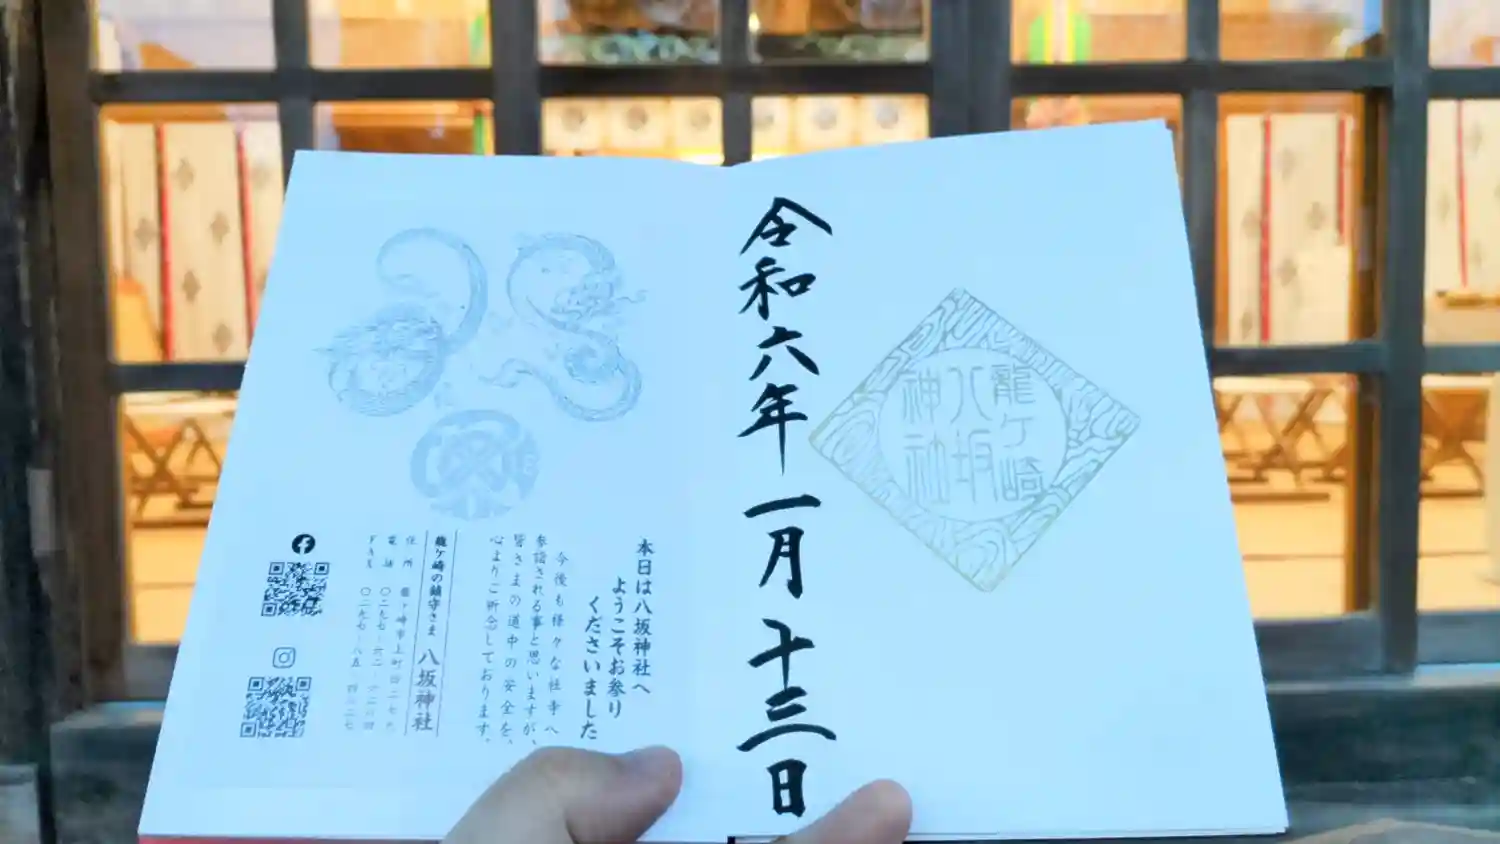 令和六年一月十三日
龍ケ崎
八坂
神社
本日は八坂神社へ
ようこそお参り
くださいました
今後も様々な社寺へ
参詣される事と思いますが、
皆さまの道中の安全を、
心よりご祈念しております。
龍ケ崎の鎮守さま 八坂神社
住所 龍ヶ崎市上町四二七九
電話
FAX